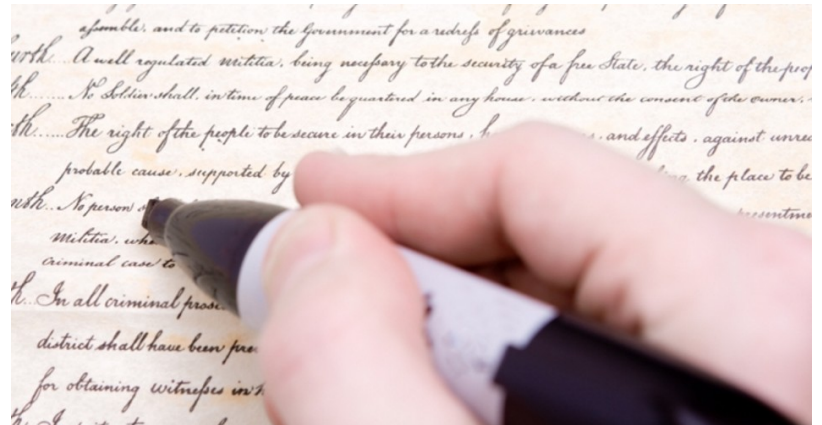 assemble, and to petition the Government for a redress of grievances
A well regulated Militia, being necessary to the security of a free State, the right of the
No Soldier shall, in time of peace be quartered in any house, without the consent of the owner,
The right of the people to be secure in their persons, and effects, against
probable cause, supported by the place to be
No person
Militia,
criminal case to
In all criminal
district shall have been
for obtaining witnesses in